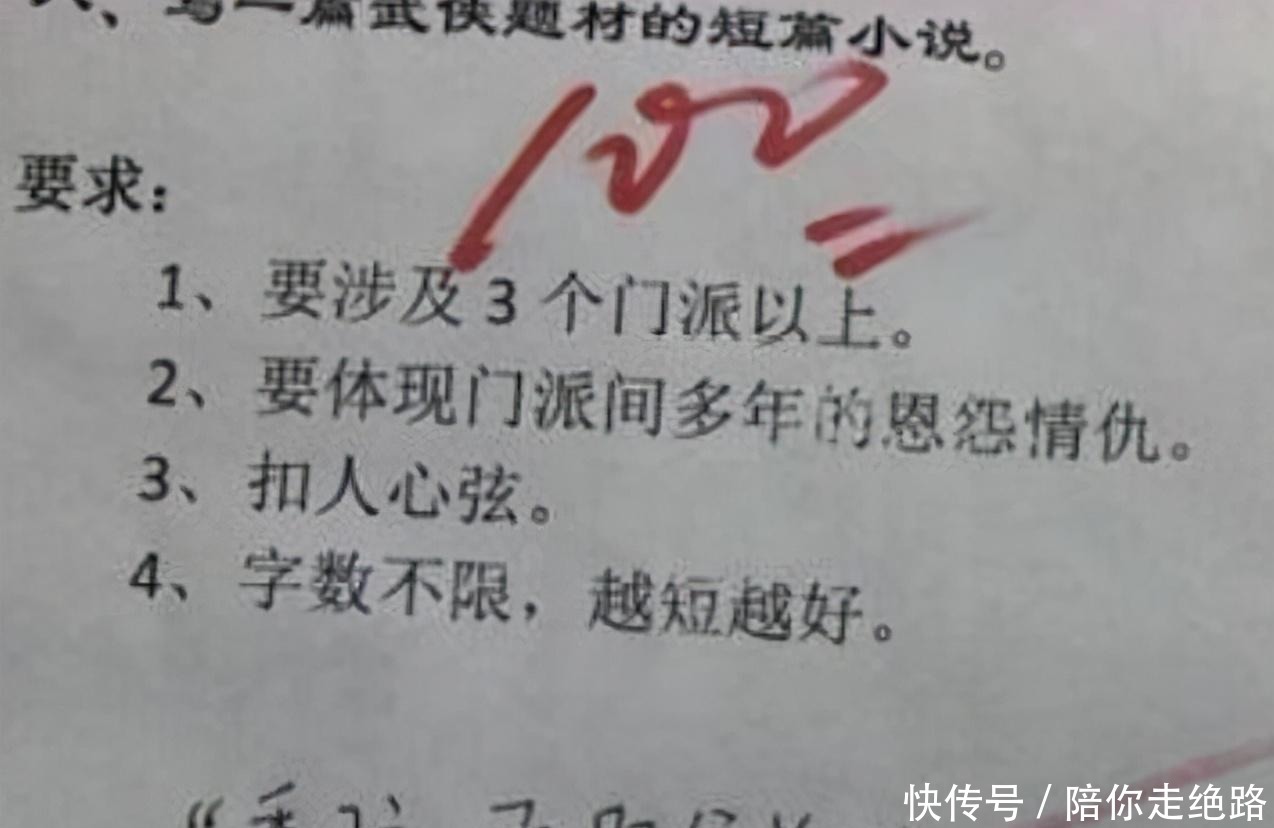 写一篇武侠题材的短篇小说。
100
要求：
1、要涉及 3 个门派以上。
2、要体现门派间多年的恩怨情仇。
3、扣人心弦。
4、字数不限，越短越好。
快传号 / 陪你走绝路